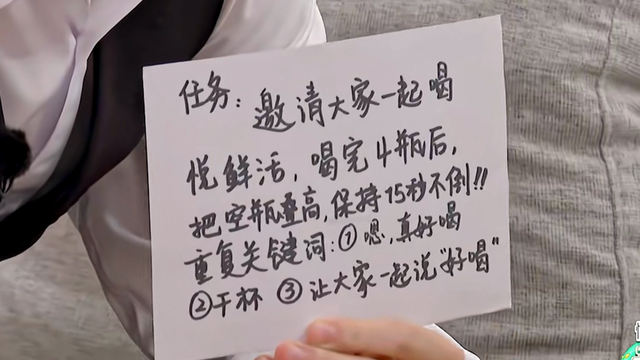 任务：邀请大家一起喝
悦鲜活，喝完4瓶后，
把空瓶叠高，保持15秒不倒!!
重复关键词：①嗯，真好喝
②干杯 ③让大家一起说“好喝”